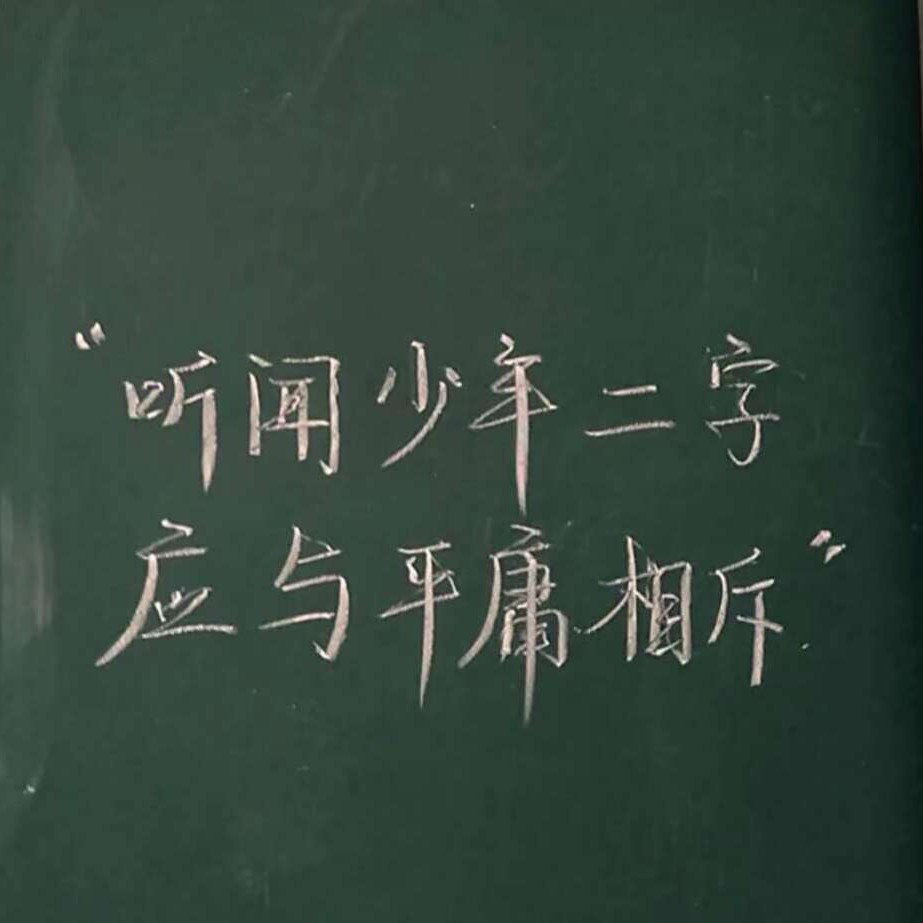 “听闻少年二字
应与平庸相斥”